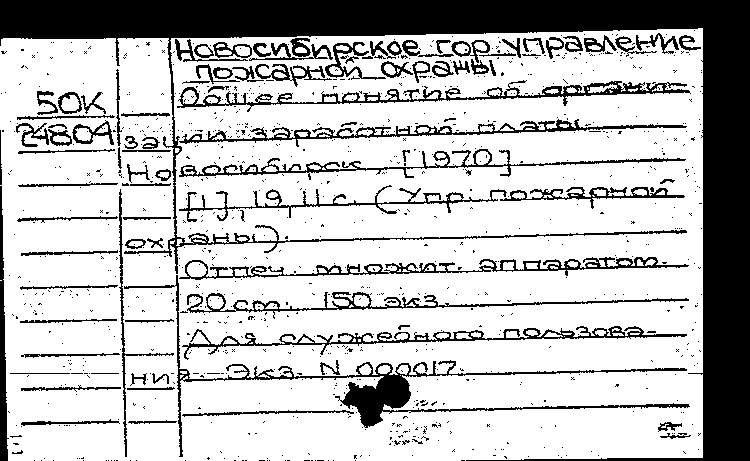 Новосибирское гор. управление
пожарной охраны.
50К
Общее понятие об органи-
24804
зации заработной платы.
Новосибирск, [1970].
[1], 19, 11 с. (Упр. пожарной
охраны).
Отпеч. множит. аппаратом.
20 см. 150 экз.
Для служебного пользова-
ния. Экз. N 000017.